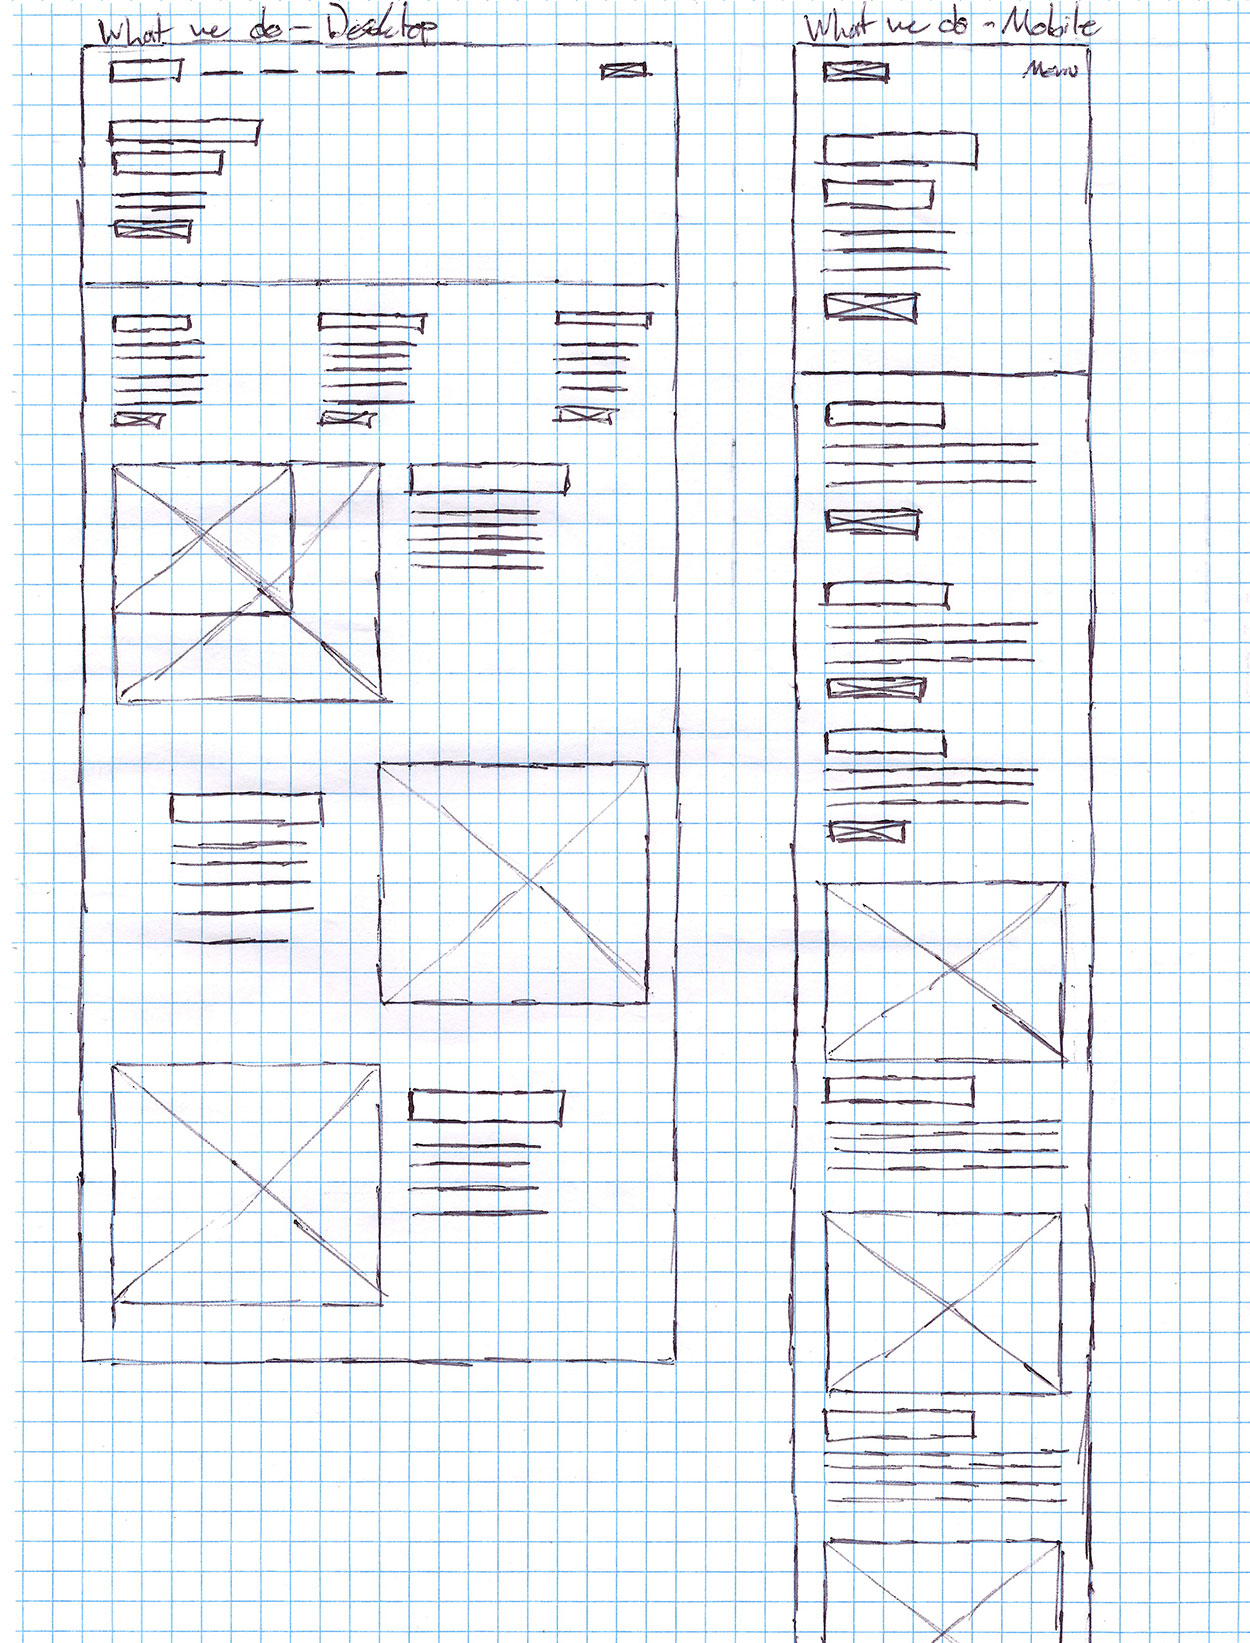 What we do - Desktop
What we do - Mobile
Menu